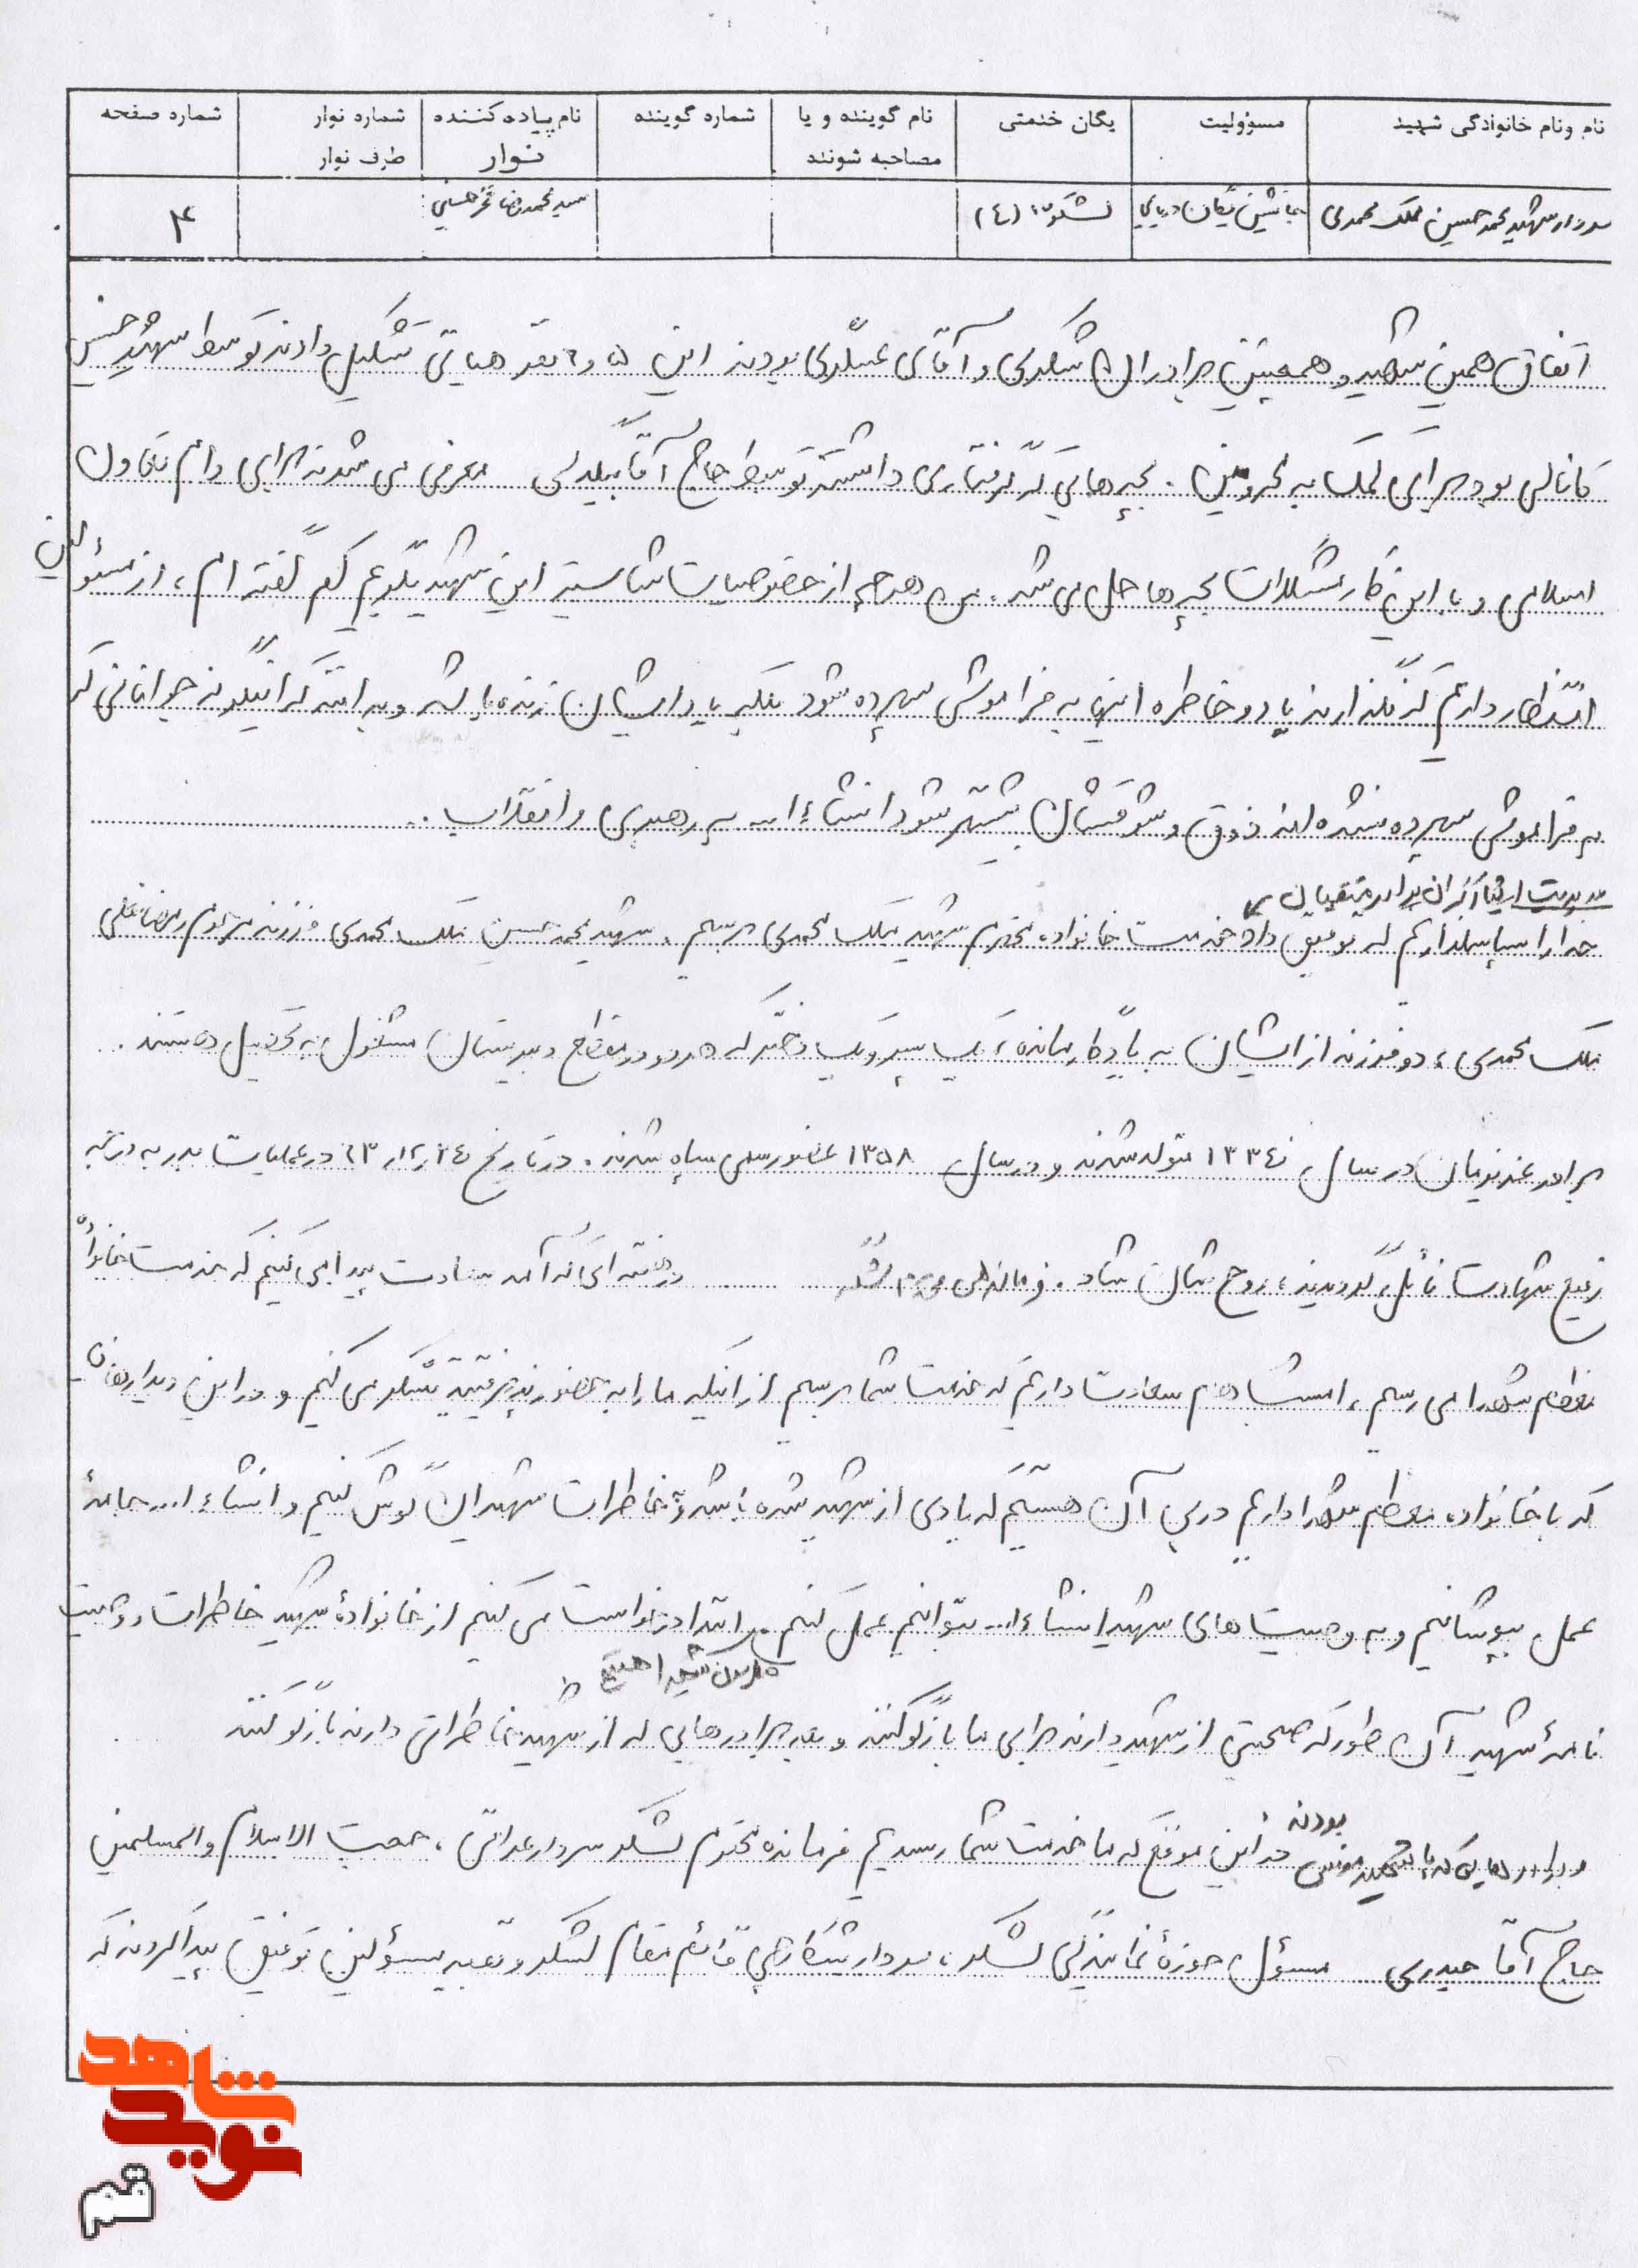 نام ونام خانوادگی شهید
مسؤولیت
یگان خدمتی
نام گوینده و یا مصاحبه شونده
شماره گوینده
نام پیاده کننده نوار
شماره نوار
طرف نوار
شماره صفحه
سردار شهید محمدحسین ملک محمدی
جانشین یگان دریایی
سید محمدرضا
۴
اتفاق همین شهید و همچنین برادران شکری و آقای عسگری بودند این ۵ و ۶ نفر هیأتی تشکیل دادند توسط شهید حسین
کانالی بود برای کمک به محرومین . بچه هایی که گرفتاری داشتند توسط حاج آقا بیگدلی معرفی می شدند برای وام تعاون
اسلامی و با این کار مشکلات بچه ها حل می شد . من هر چه از خصوصیات این شهید بگویم کم گفته ام ، از مسئولین
انتظار داریم که نگذارند یاد و خاطره اینها به فراموشی سپرده شود بلکه یاد ایشان زنده باشد و بدانند که اینگونه جوانانی که
به فراموشی سپرده نشده اند ذوق و شوقشان بیشتر شود انشاءا... به رهبری و انقلاب .
خدا را سپاسگذاریم که توفیق داد خدمت خانواده محترم شهید ملک محمدی برسیم . شهید محمدحسین ملک محمدی فرزند مرحوم رمضانعلی
ملک محمدی ، دو فرزند از ایشان به یادگار مانده ، یک پسر و یک دختر که هر دو در مقطع دبیرستان مشغول به تحصیل هستند .
برادر عزیزمان در سال ۱۳۳۴ متولد شدند و در سال ۱۳۵۸ عضو رسمی سپاه شدند . در تاریخ ۲۴ر۱۲ر۶۳ در عملیات بدر به درجه
رفیع شهادت نائل گردیدند ، روح شان شاد . در هفته ای که آمد سعادت پیدا می کنیم که خدمت خانواده
معظم شهدا می رسیم ، امشب هم سعادت داریم که خدمت شما برسیم از اینکه ما را به حضور پذیرفتید تشکر می کنیم و در این دیدارهای
که با خانواده معظم شهدا داریم درپی آن هستیم که یادی از شهید شده باشد و خاطرات شهید ان گوش کنیم و انشاءا... جامهٔ
عمل بپوشانیم و به وصیت های شهید انشاءا... بتوانیم عمل کنیم . ابتدا درخواست می کنیم از خانوادهٔ شهید خاطرات و وصیت
نامهٔ شهید آن طور که صحبتی از شهید دارند برای ما بازگو کنند و بعد برادرهایی که از شهید خاطراتی دارند بازگو کنند
و برادرهایی که با شهید مونس بودند در این موقع که ما خدمت شما رسیدیم فرمانده محترم لشکر سردار عراقی ، حجت الاسلام والمسلمین
حاج آقا حیدری مسئول حوزهٔ نمایندگی لشکر ، سردار شکارچی قائم مقام لشکر و بقیه مسؤلین توفیق پیدا کردند که
نوید شاهد
قم